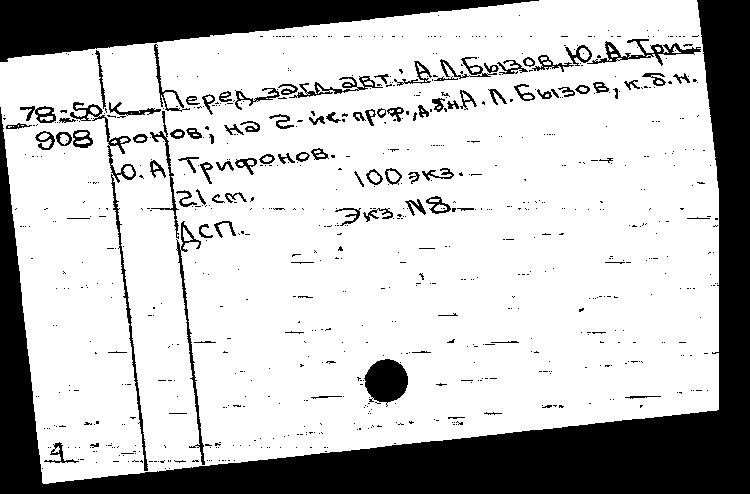 78-50к Перед загл. авт.: А.Л.Бызов, Ю.А.Три-
908 фонов; на 2-й с.: проф., д.б.н. А.Л.Бызов, к.б.н.
Ю.А. Трифонов.
21 см. 100 экз.
ДСП. Экз. N8.
4